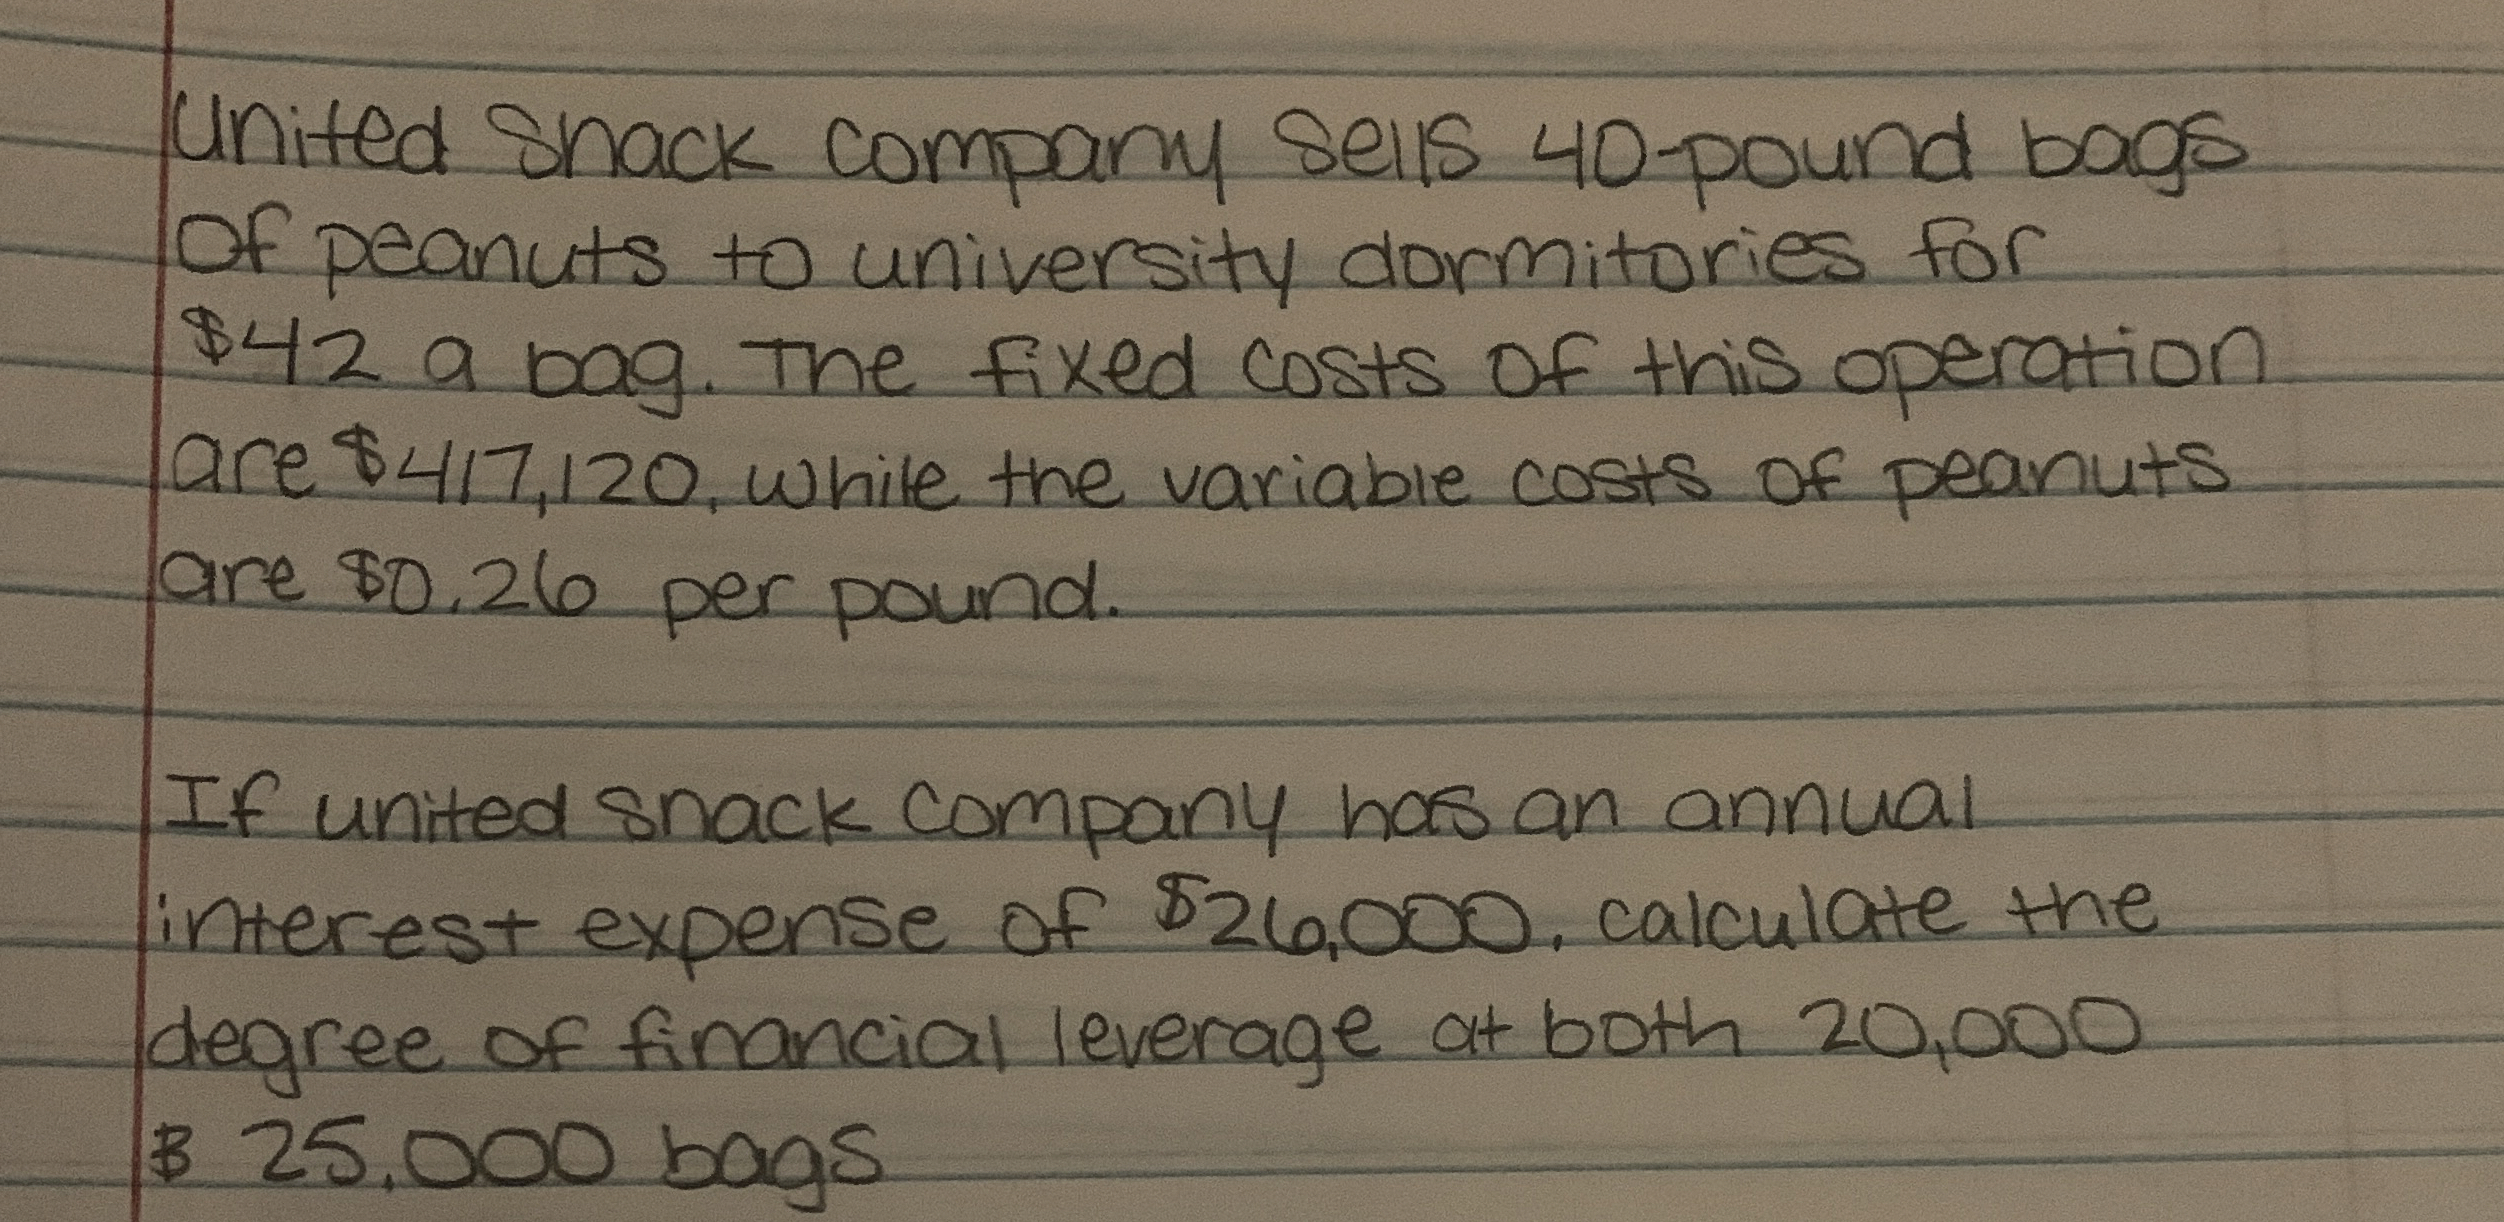 United Snack Company sells 40-pound bags
of peanuts to university dormitories for
$42 a bag. The fixed costs of this operation
are $417,120, while the variable costs of peanuts
are $0.26 per pound.
If united snack company has an annual
interest expense of $26,000, calculate the
degree of financial leverage at both 20,000
& 25,000 bags